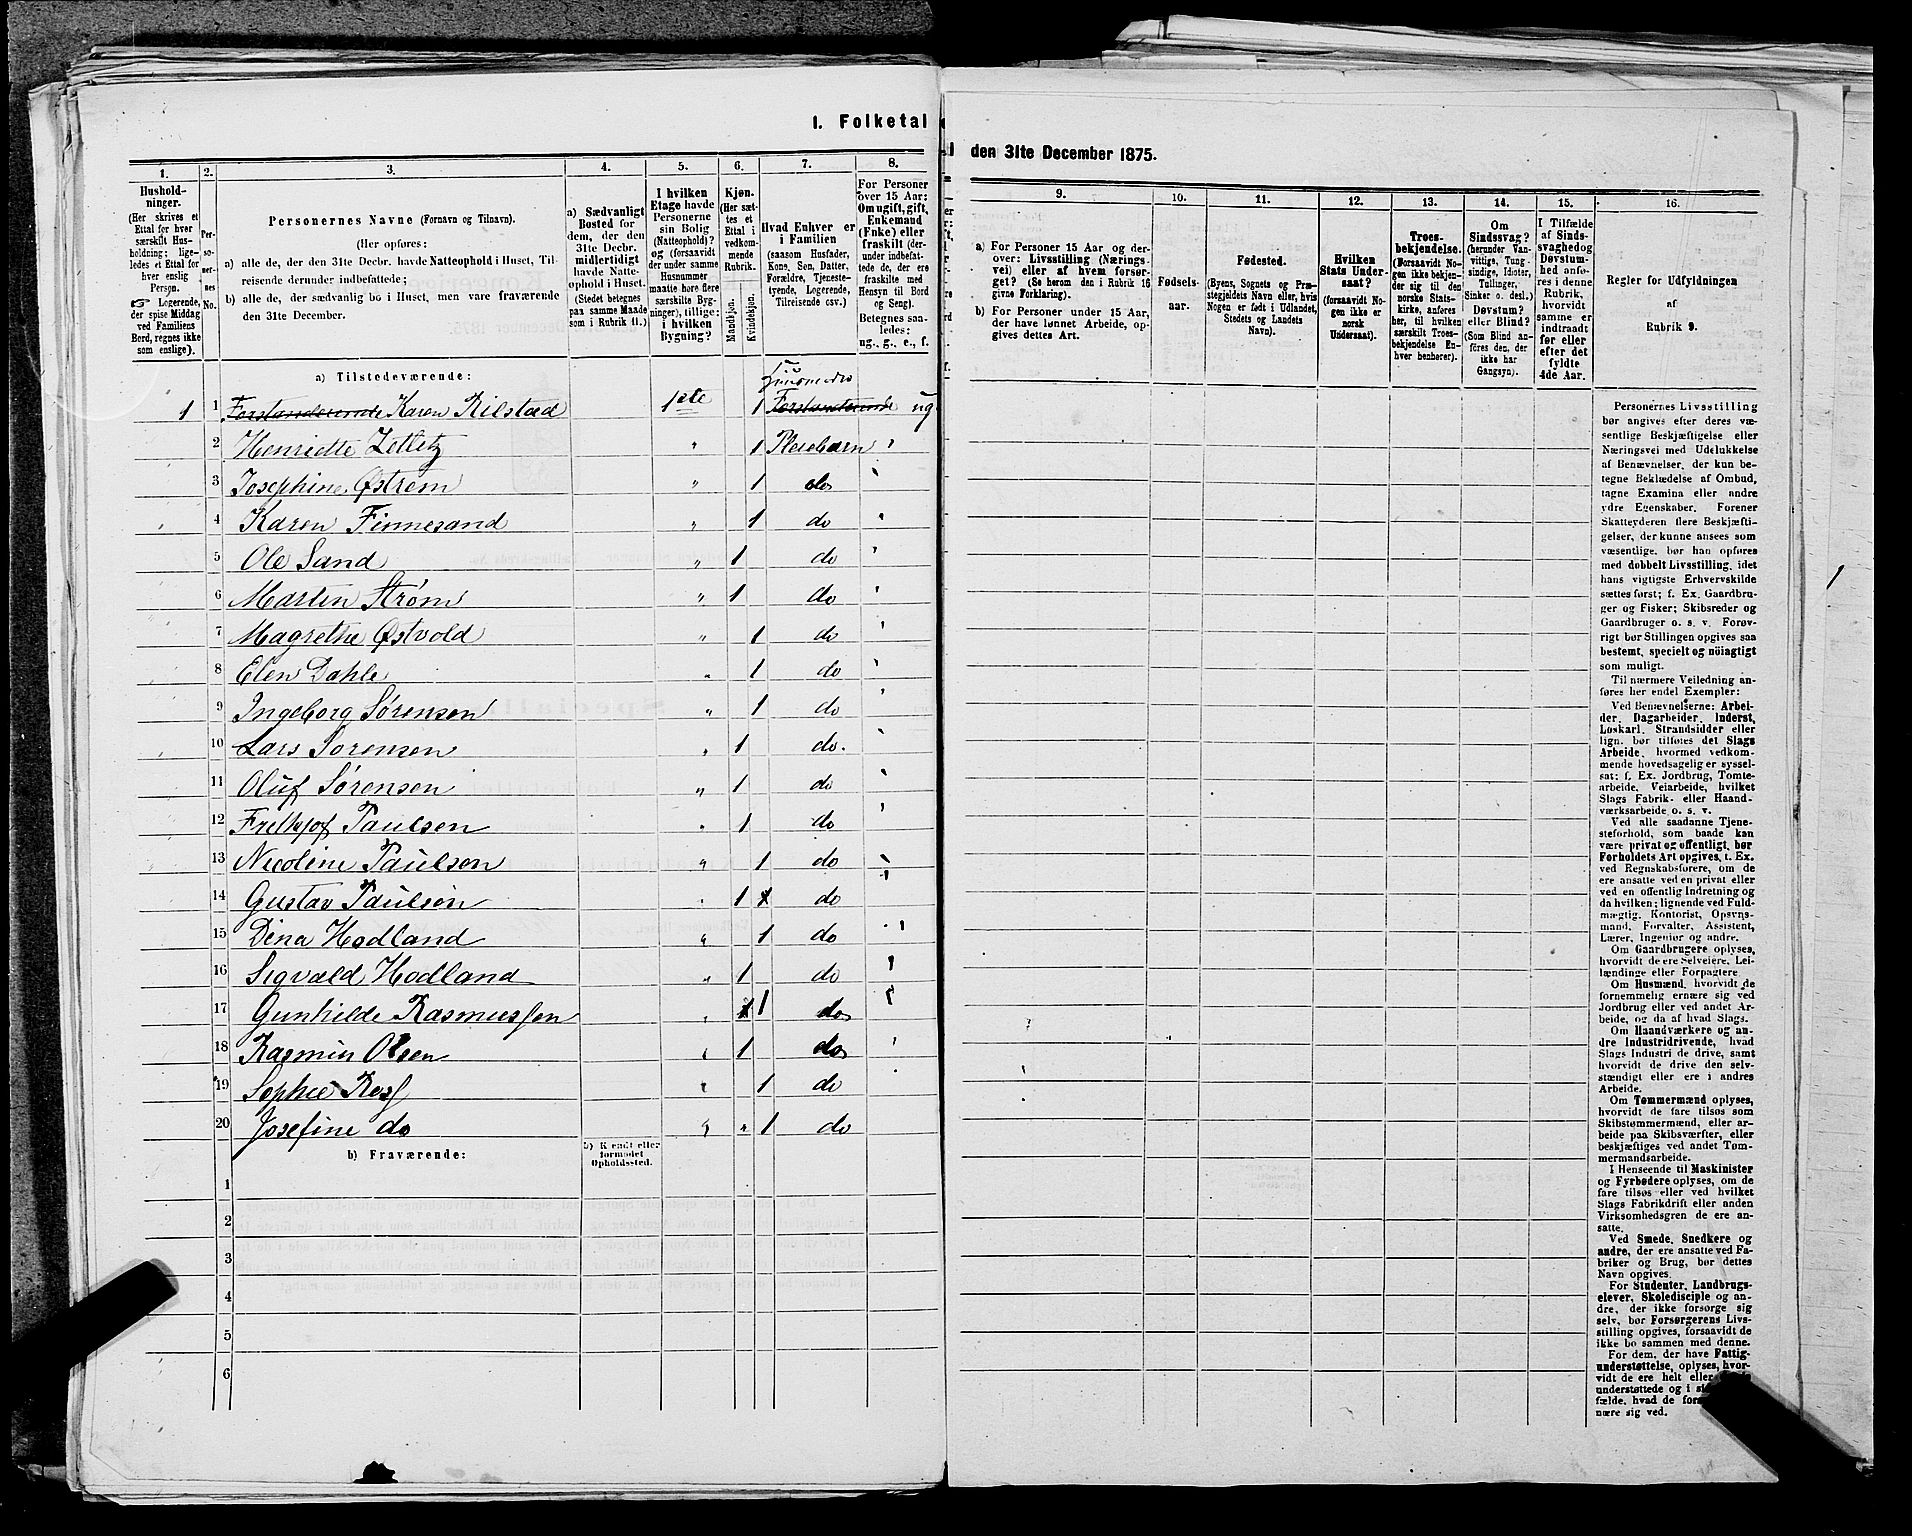 I. Folketal
den 31te December 1875.
1.
Hushold-
ninger.
(Her skrives et
Ettal for hver
særskilt Hus-
holdning; lige-
ledes et Ettal for
hver enslig
Person.
☞ Logerende,
der spise Middag
ved Familiens
Bord, regnes ikke
som enslige).
2.
Per-
so-
ner-
nes
No.
3.
Personernes Navne (Fornavn og Tilnavn).
(Her opføres:
a) alle de, der den 31te Decbr. havde Natteophold i Huset, Til-
reisende derunder indbefattede;
b) alle de, der sædvanlig bo i Huset, men vare fraværende
den 31te December.
4.
a) Sædvanligt
Bosted for
dem, der den
31te Decbr.
midlertidigt
havde Natte-
ophold i Huset.
(Stedet betegnes
paa samme Maade
som i Rubrik 11.)
5.
I hvilken
Etage havde
Personerne
sin Bolig
(Natteophold)?
og (forsaavidt
der under samme
Husnummer
maatte høre flere
særskilte Byg-
ninger), tillige:
i hvilken
Bygning?
6.
Kjøn.
(Her sæt-
tes et
Ettal i
vedkom-
mende
Rubrik.
Mandkjøn.
Kvindekjøn.
7.
Hvad Enhver er
i Familien
(saasom Husfader,
Kone, Søn, Datter,
Forældre, Tjeneste-
tyende, Logerende,
Tilreisende csv.)
8.
For Personer
over 15 Aar:
Om ugift, gift,
Enkemand
(Enke) eller
fraskilt (der-
under indbefat-
tede de, der ere
fraskilte med
Hensyn til Bord
og Seng).
Betegnes saa-
ledes:
ug., g., e., f.
9.
a) For Personer 15 Aar og der-
over: Livsstilling (Nærings-
vei) eller af hvem forsør-
get? (Se herom den i Rubrik 16
givne Forklaring).
b) For Personer under 15 Aar,
der have lønnet Arbeide, op-
gives dettes Art.
10.
Fødsels-
aar.
11.
Fødested.
(Byens, Sognets og Præ-
stegjeldets Navn eller, hvis
Nogen er født i Udlandet,
Stedets og Landets
Navn).
12.
Hvilken
Stats Under-
saat?
(forsaavidt No-
gen ikke er
norsk
Undersaat).
13.
Troes-
bekjendelse.
(Forsaavidt No-
gen ikke bekjen-
der sig til den
norske Stats-
kirke, anføres
her, til hvilken
særskilt Troes-
bekjendelse En-
hver benhører).
14.
Om
Sindssvag?
(herunder Van-
vittige, Tung-
sindige, Idioter,
Tullinger,
Sinker o. desl.)
Døvstum?
eller Blind?
(Som Blind an-
føres den, der
ikke har
Gangsyn).
15.
I Tilfælde
af Sinds-
svaghed og
Døvstum-
hed anfø-
res i denne
Rubrik,
hvorvidt
samme er
indtraadt
før eller
efter det
fyldte
4de Aar.
16.
Regler for Udfyldningen
af
Rubrik 9.
a) Tilstedeværende:
1 1 Forstanderinde Karen Kilstad 1ste 1 Forstanderinde ug
2 Henriette Zetlitz " 1 Pleiebarn '
3 Josephine Østrem " 1 do '
4 Karen Finnesand " 1 do '
5 Ole Sand " 1 do '
6 Martin Strøm " 1 do '
7 Magrethe Østvold " 1 do '
8 Elen Dahle " 1 do '
9 Ingeborg Sørensen " 1 do '
10 Lars Sorensen " 1 do. '
11 Oluf Sørensen " 1 do '
12 Frithjof Paulsen " 1 do '
13 Nicoline Paulsen " 1 do '
14 Gustav Paulsen " 1 1 do '
15 Dina Hodland " 1 do '
16 Sigvald Hodland " 1 do '
17 Gunhilde Rasmussen " 1 1 do '
18 Rasmus Olsen " 1 do '
19 Sophie Ross " 1 do
20 Josefine do " " 1 do
b) Fraværende:
b) Kjendt eller
formodet
Opholdssted.
1
2
3
4
5
6
Personernes Livsstilling
bør angives efter deres væ-
sentlige Beskjæftigelse eller
Næringsvei med Udelukkelse
af Benævnelser, der kun be-
tegne Beklædelse af Ombud,
tagne Examina eller andre
ydre Egenskaber. Forener
Skatteyderen flere Beskjæfti-
gelser, der kunne ansees som
væsentlige, bør han opføres
med dobbelt Livsstilling, idet
hans vigtigste Erhvervskilde
sættes først; f. Ex. Gaardbru-
ger og Fisker; Skibsreder og
Gaardbruger o. s. v. Forøv-
rigt bør Stillingen opgives saa
bestemt, specielt og nøiagtigt
som muligt.
Til nærmere Veiledning an-
føres her endel Exempler:
Ved Benævnelserne: Arbei-
der, Dagarbeider, Inderst,
Løskarl, Strandsidder eller
lign. bør tilføies det Slags
Arbeide, hvormed vedkom-
mende hovedsagelig er syssel-
sat; f. Ex. Jordbrug, Tomte-
arbeide, Veiarbeide, hvilket
Slags Fabrik- eller Haand-
værksarbeide o. s. v.
Ved alle saadanne Tjene-
steforhold, som baade kan
være privat og offentligt, bør
Forholdets Art opgives, t. Ex.
ved Regnskabsførere, om de
ere ansatte ved en privat eller
ved en offentlig Indretning og
da hvilken; lignende ved Fuld-
mægtig, Kontorist, Opsyns-
mand, Forvalter, Assistent,
Lærer, Ingeniør og andre.
Om Gaardbrugere oplyses,
hvorvidt de ere Selveiere, Lei-
lændinge eller Forpagtere
Om Husmænd, hvorvidt de
fornemmelig ernære sig ved
Jordbrug eller ved andet Ar-
beide, og da af hvad Slags.
Om Haandværkere og an-
dre Industridrivende, hvad
Slags Industri de drive, samt
hvorvidt de drive den selv-
stændigt eller ere i andres
Arbeide.
Om Tømmermænd oplyses,
hvorvidt de fare tilsøs som
Skibstømmermænd, eller ar-
beide paa Skibsværfter, eller
beskjæftiges ved andet Tøm-
mermandsarbeide.
I Henseende til Maskinister
og Fyrbødere oplyses, om de
fare tilsøs eller ved hvilket
Slags Fabrikdrift eller anden
Virksomhedsgren de ere an-
satte.
Ved Smede, Snedkere og
andre, der ere ansatte ved Fa-
briker og Brug, bør dettes
Navn opgives.
For Studenter, Landbrugs-
elever, Skoledisciple og an-
dre, der ikke forsørge sig
selv, bør Forsørgerens Livs-
stilling opgives, forsaavidt de
ikke bo sammen med denne.
For dem, der have Fattig-
understøttelse, oplyses, hvor-
vidt de ere helt eller
understøttede og i
fælde, hvad de
nære sig ved.